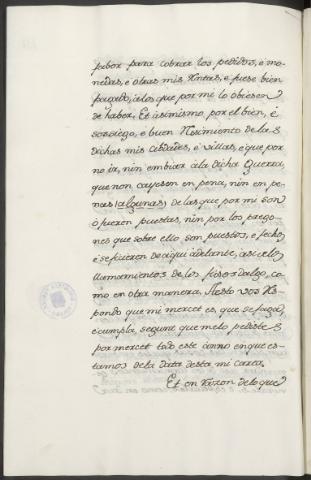 fabor para cobrar los pedidos, é mo-
nedas, é otras mis Rentas, é fuese bien
pagado, á los que por mi lo obiesen
de haber. Et asimismo por el bien, é
sosiego, é buen Regimiento de las
dichas mis cibdades, é villas, é que por
no ir, nin embiar á la dicha Guerra,
que non cayesen en pena, nin en pe-
nas algunas de las que por mi son
ó fueren puestas, nin por los prego-
nes que sobre ello son puestos, é fechos,
é se ficieren de aqui adelante, asi en los
llamamientos de los fijosdalgo, co-
mo en otra manera. A esto vos Res-
pondo que mi mercet es, que se faga,
é cumpla, segunt que me lo pediste
por mercet todo este anno en que es-
tamos de la data desta mi carta.
Et en Razon de lo que